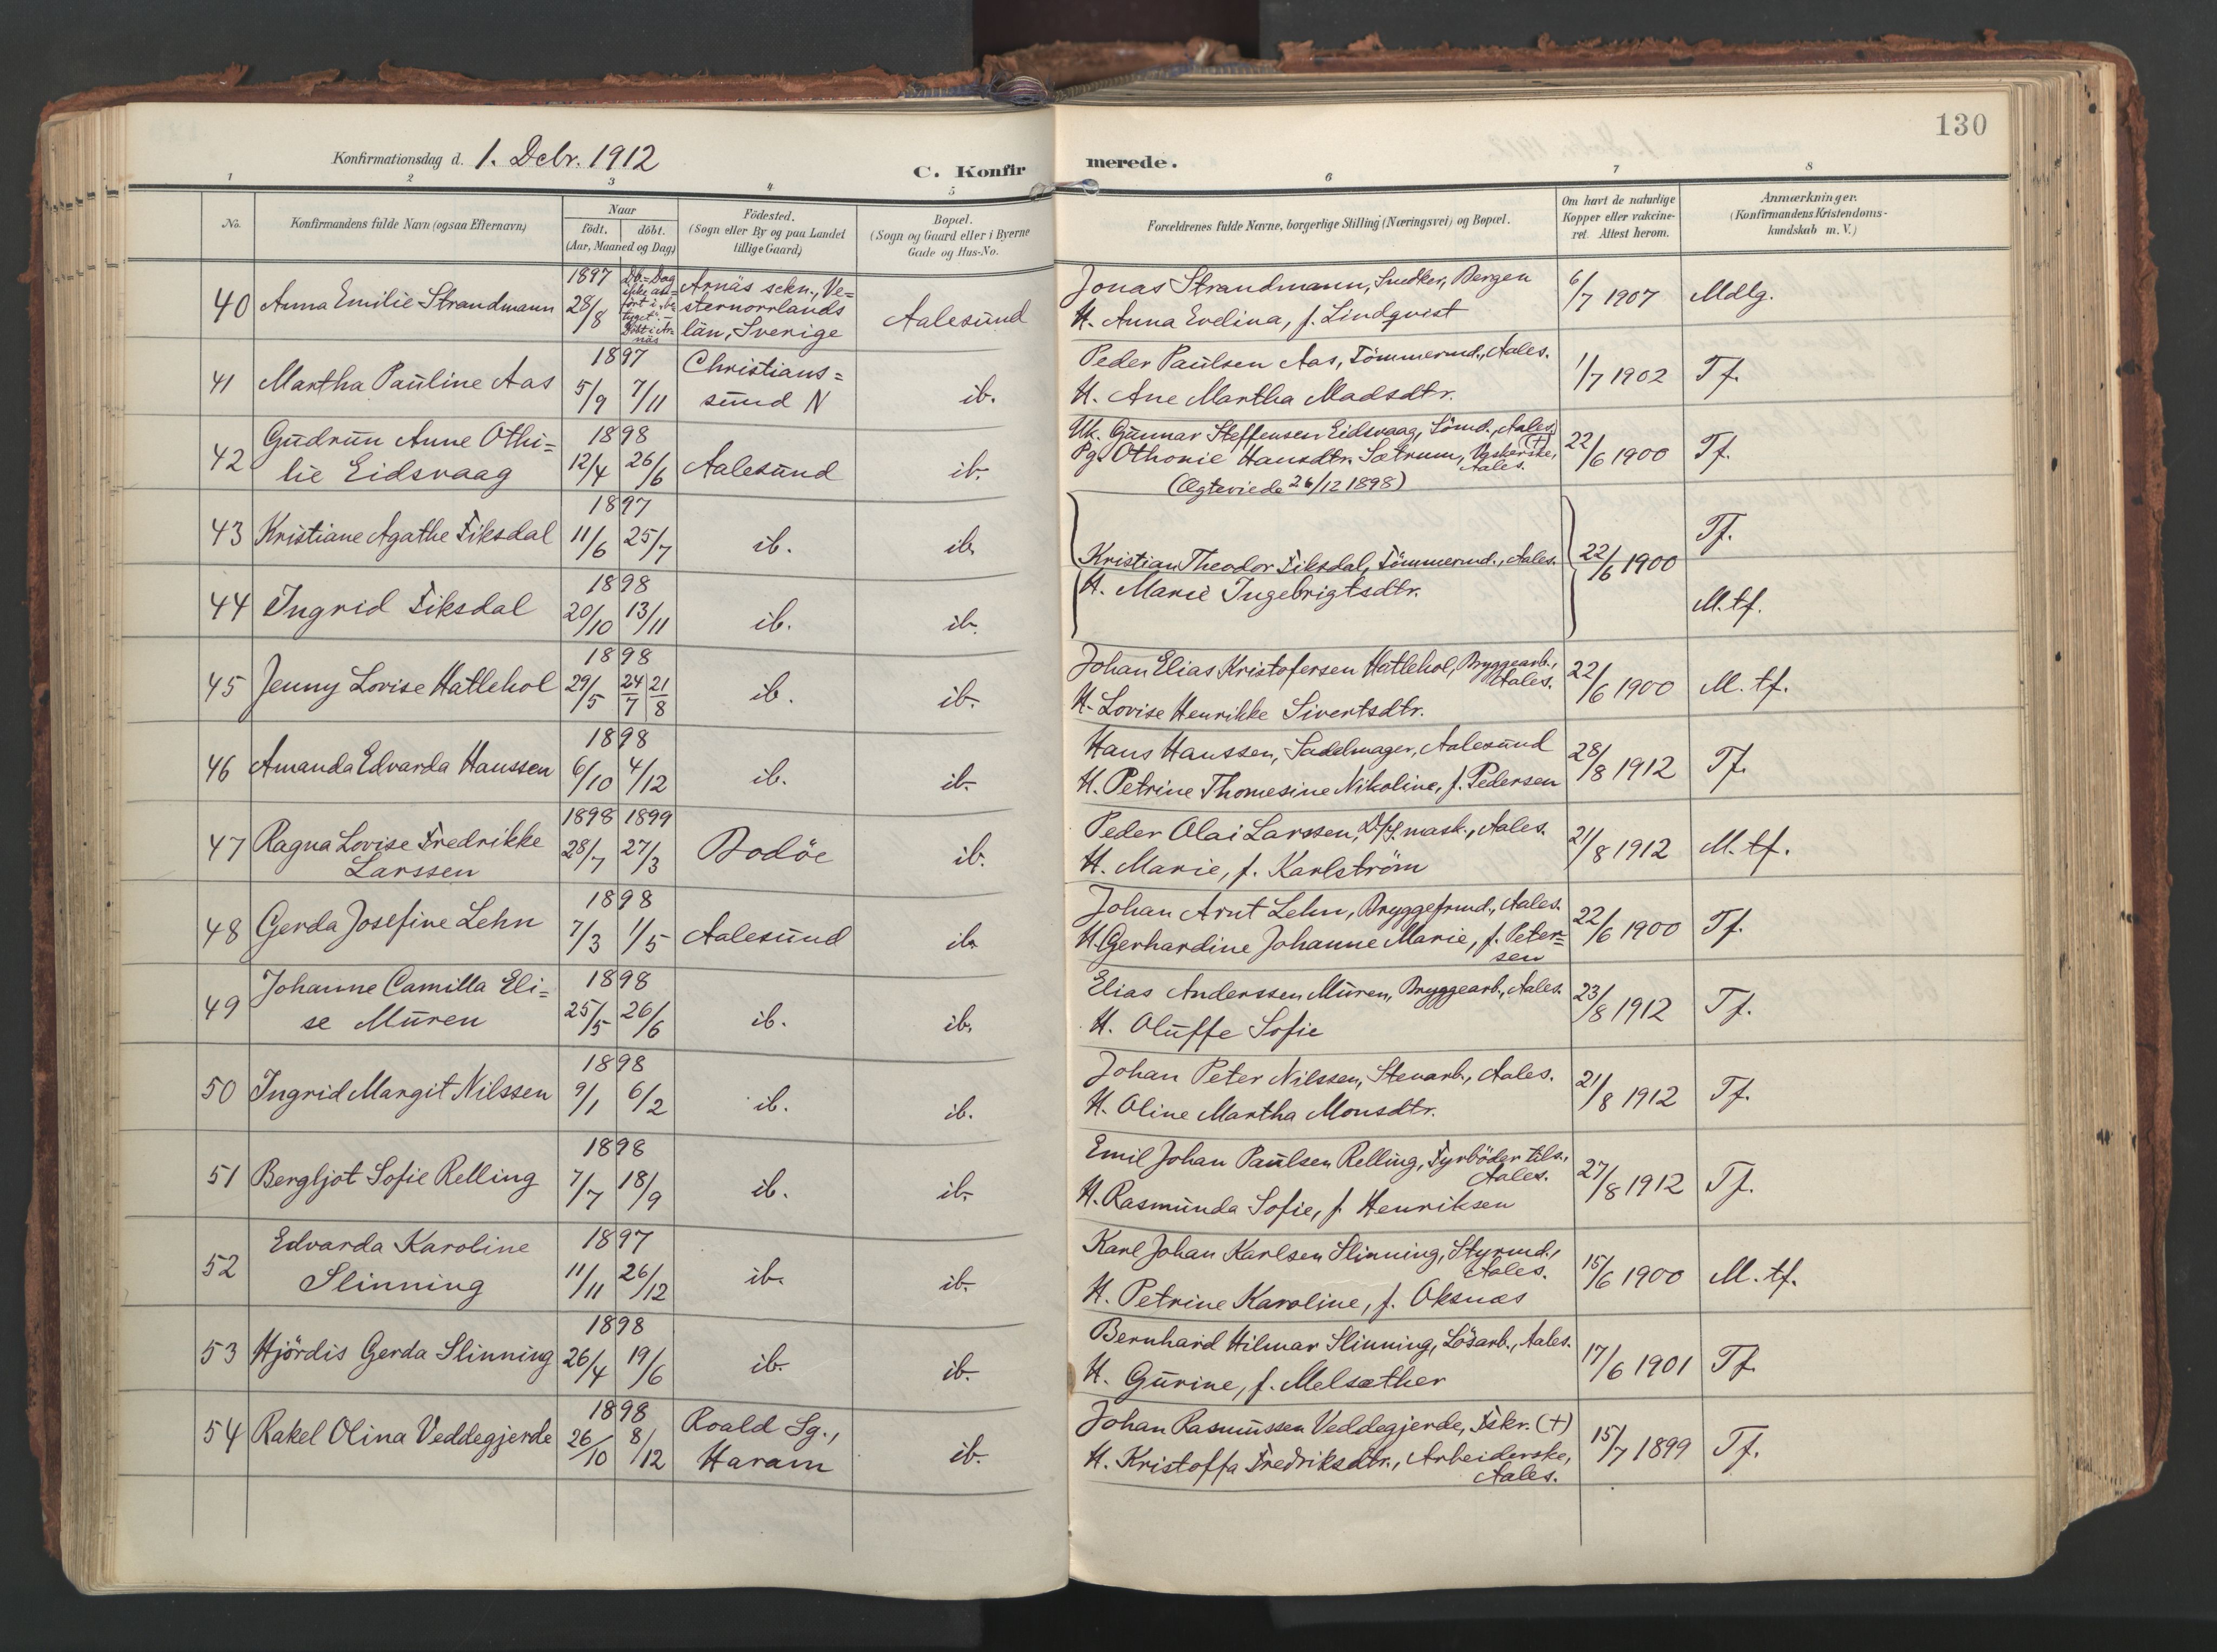 130
Konfirmationsdag d. 1. Decbr. 1912
C. Konfirmerede.
1 2 3 4 5 6 7 8
No.
Konfirmandens fulde Navn (ogsaa Efternavn)
Naar
födt. döbt.
(Aar, Maaned og Dag)
Födested.
(Sogn eller By og paa Landet
tillige Gaard)
Bopæl.
(Sogn og Gaard eller i Byerne
Gade og Hus-No.
Forældrenes fulde Navne, borgerlige Stilling (Næringsvei) og Bopæl.
Om havt de naturlige
Kopper eller vakcine-
ret. Attest herom.
Anmærkninger.
(Konfirmandens Kristendoms-
kundskab m. V.)
40 Anna Emilie Strandmann 1897 28/8 Db=Dag ikke anført i Döbt i Arnäs
Arnäs sckn., Ve=
sternorrlands
län, Sverige
Aalesund
Jonas Strandmann, Snedker, Bergen
H. Anna Evelina, f. Lindqvist
6/7 1907 Mdlg.
41 Martha Pauline Aas 1897 5/9 7/11
Christians=
sund N
ib.
Peder Paulsen Aas, Tömmermd., Aales.
H. Ane Martha Madsdtr.
1/7 1902 Tf.
42 Gudrun Anne Othi=
lie Eidsvaag
1898 12/4 26/6 Aalesund ib.
Uk. Gunnar Steffensen Eidsvaag, Sömd., Aales. (+)
Pg. Othonie Hansdtr. Sætrum, Vaskerske,
Aales.
(Ægteviede 26/12 1898)
22/6 1900 Tf.
43 Kristiane Agathe Fiksdal 1897 11/6 25/7 ib. ib. Tf.
Kristian Theodor Fiksdal, Tömmermd., Aales.
H. Marie Ingebrigtsdtr.
22/6 1900
44 Ingrid Fiksdal 1898 20/10 13/11 ib. ib. M.tf.
45 Jenny Lovise Hatlehol 1898 29/5 24/7 21/8 ib. ib.
Johan Elias Kristofersen Hatlehol, Bryggearb.,
Aales.
H. Lovise Henrikke Sivertsdtr.
22/6 1900 M.tf.
46 Amanda Edvarda Hanssen 1898 6/10 4/12 ib. ib.
Hans Hanssen, Sadelmager, Aalesund
H. Petrine Thomesine Nikoline, f. Pedersen
28/8 1912 Tf.
47 Ragna Lovise Fredrikke
Larssen
1898 28/7 1899 27/3 Bodöe ib.
Peder Olai Larssen, D/S. mask., Aales.
H. Marie, f. Karlström
21/8 1912 M.tf.
48 Gerda Josefine Lehn 1898 7/3 1/5 Aalesund ib.
Johan Arnt Lehn, Bryggefmd., Aales.
H. Gerhardine Johanne Marie, f. Peter=
sen
22/6 1900 Tf.
49 Johanne Camilla Eli=
se Muren
1898 25/5 26/6 ib. ib.
Elias Anderssen Muren, Bryggearb., Aales.
H. Oluffe Sofie
23/8 1912 Tf.
50 Ingrid Margit Nilssen 1898 9/1 6/2 ib. ib.
Johan Peter Nilssen, Stenarb., Aales.
H. Oline Martha Monsdtr.
21/8 1912 Tf.
51 Bergljot Sofie Relling 1898 7/7 18/9 ib. ib.
Emil Johan Paulsen Relling, Fyrböder tils.,
Aales.
H. Rasmunda Sofie, f. Henriksen
27/8 1912 Tf.
52 Edvarda Karoline
Slinning
1897 11/11 26/12 ib. ib.
Karl Johan Karlsen Slinning, Styrmd.,
Aales.
H. Petrine Karoline, f. Oksnæs
15/6 1900 M.tf.
53 Hjördis Gerda Slinning 1898 26/4 19/6 ib. ib.
Bernhard Hilmar Slinning, Lösarb., Aales.
H. Gurine, f. Melsæther
17/6 1901 Tf.
54 Rakel Olina Veddegjerde 1898 26/10 8/12
Roald Sg.,
Haram
ib.
Johan Rasmussen Veddegjerde, Fskr. (+)
H. Kristoffa Fredriksdtr., Arbeiderske,
Aales.
15/7 1899 Tf.